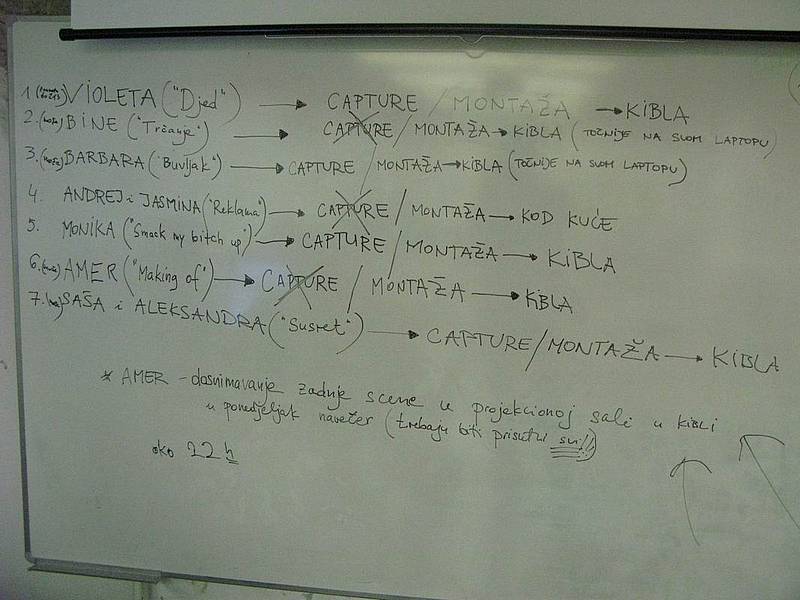 1. VIOLETA ("Djed") → CAPTURE / MONTAŽA → KIBLA
2. BINE ("Trčanje") → CAPTURE / MONTAŽA → KIBLA (TOČNIJE NA SVOM LAPTOPU)
3. BARBARA ("Buvljak") → CAPTURE MONTAŽA → KIBLA (TOČNIJE NA SVOM LAPTOPU)
4. ANDREJ i JASMINA ("Reklama") → CAPTURE / MONTAŽA → KOD KUĆE
5. MONIKA ("Smack my bitch up") → CAPTURE / MONTAŽA → KIBLA
6. AMER ("Making of") → CAPTURE / MONTAŽA → KIBLA
7. SAŠA i ALEKSANDRA ("Susret") → CAPTURE / MONTAŽA → KIBLA
* AMER - dosnimavanje zadnje scene u projekcionoj sali u KIBLI
u ponedjeljak navečer (trebaju biti prisutni svi!!)
oko 22 h